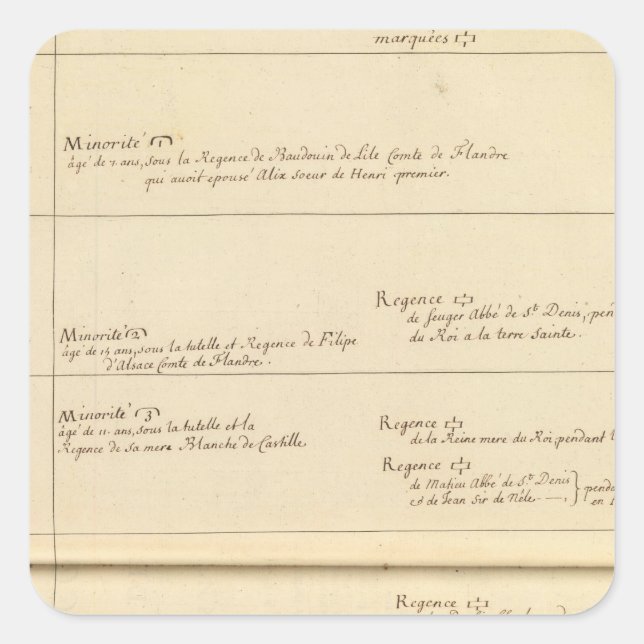 marquées
Minorité 1
âgé de 7 ans, sous la Regence de Baudouin de Lile Comte de Flandre
qui avoit epousé Alix soeur de Henri premier.
Regence
de Seuger Abbé de St. Denis, pen
du Roi a la terre Sainte.
Minorité 2
âgé de 14 ans, sous la tutelle et Regence de Filipe
d'Alsace Comte de Flandre.
Minorité 3
âgé de 11. ans, sous la tutelle et la
Regence de sa mere Blanche de Castille
Regence
de la Reine mere du Roi, pendant
Regence
de Matieu Abbé de St. Denis
& de Jean Sir de Néle
penda
en
Regence